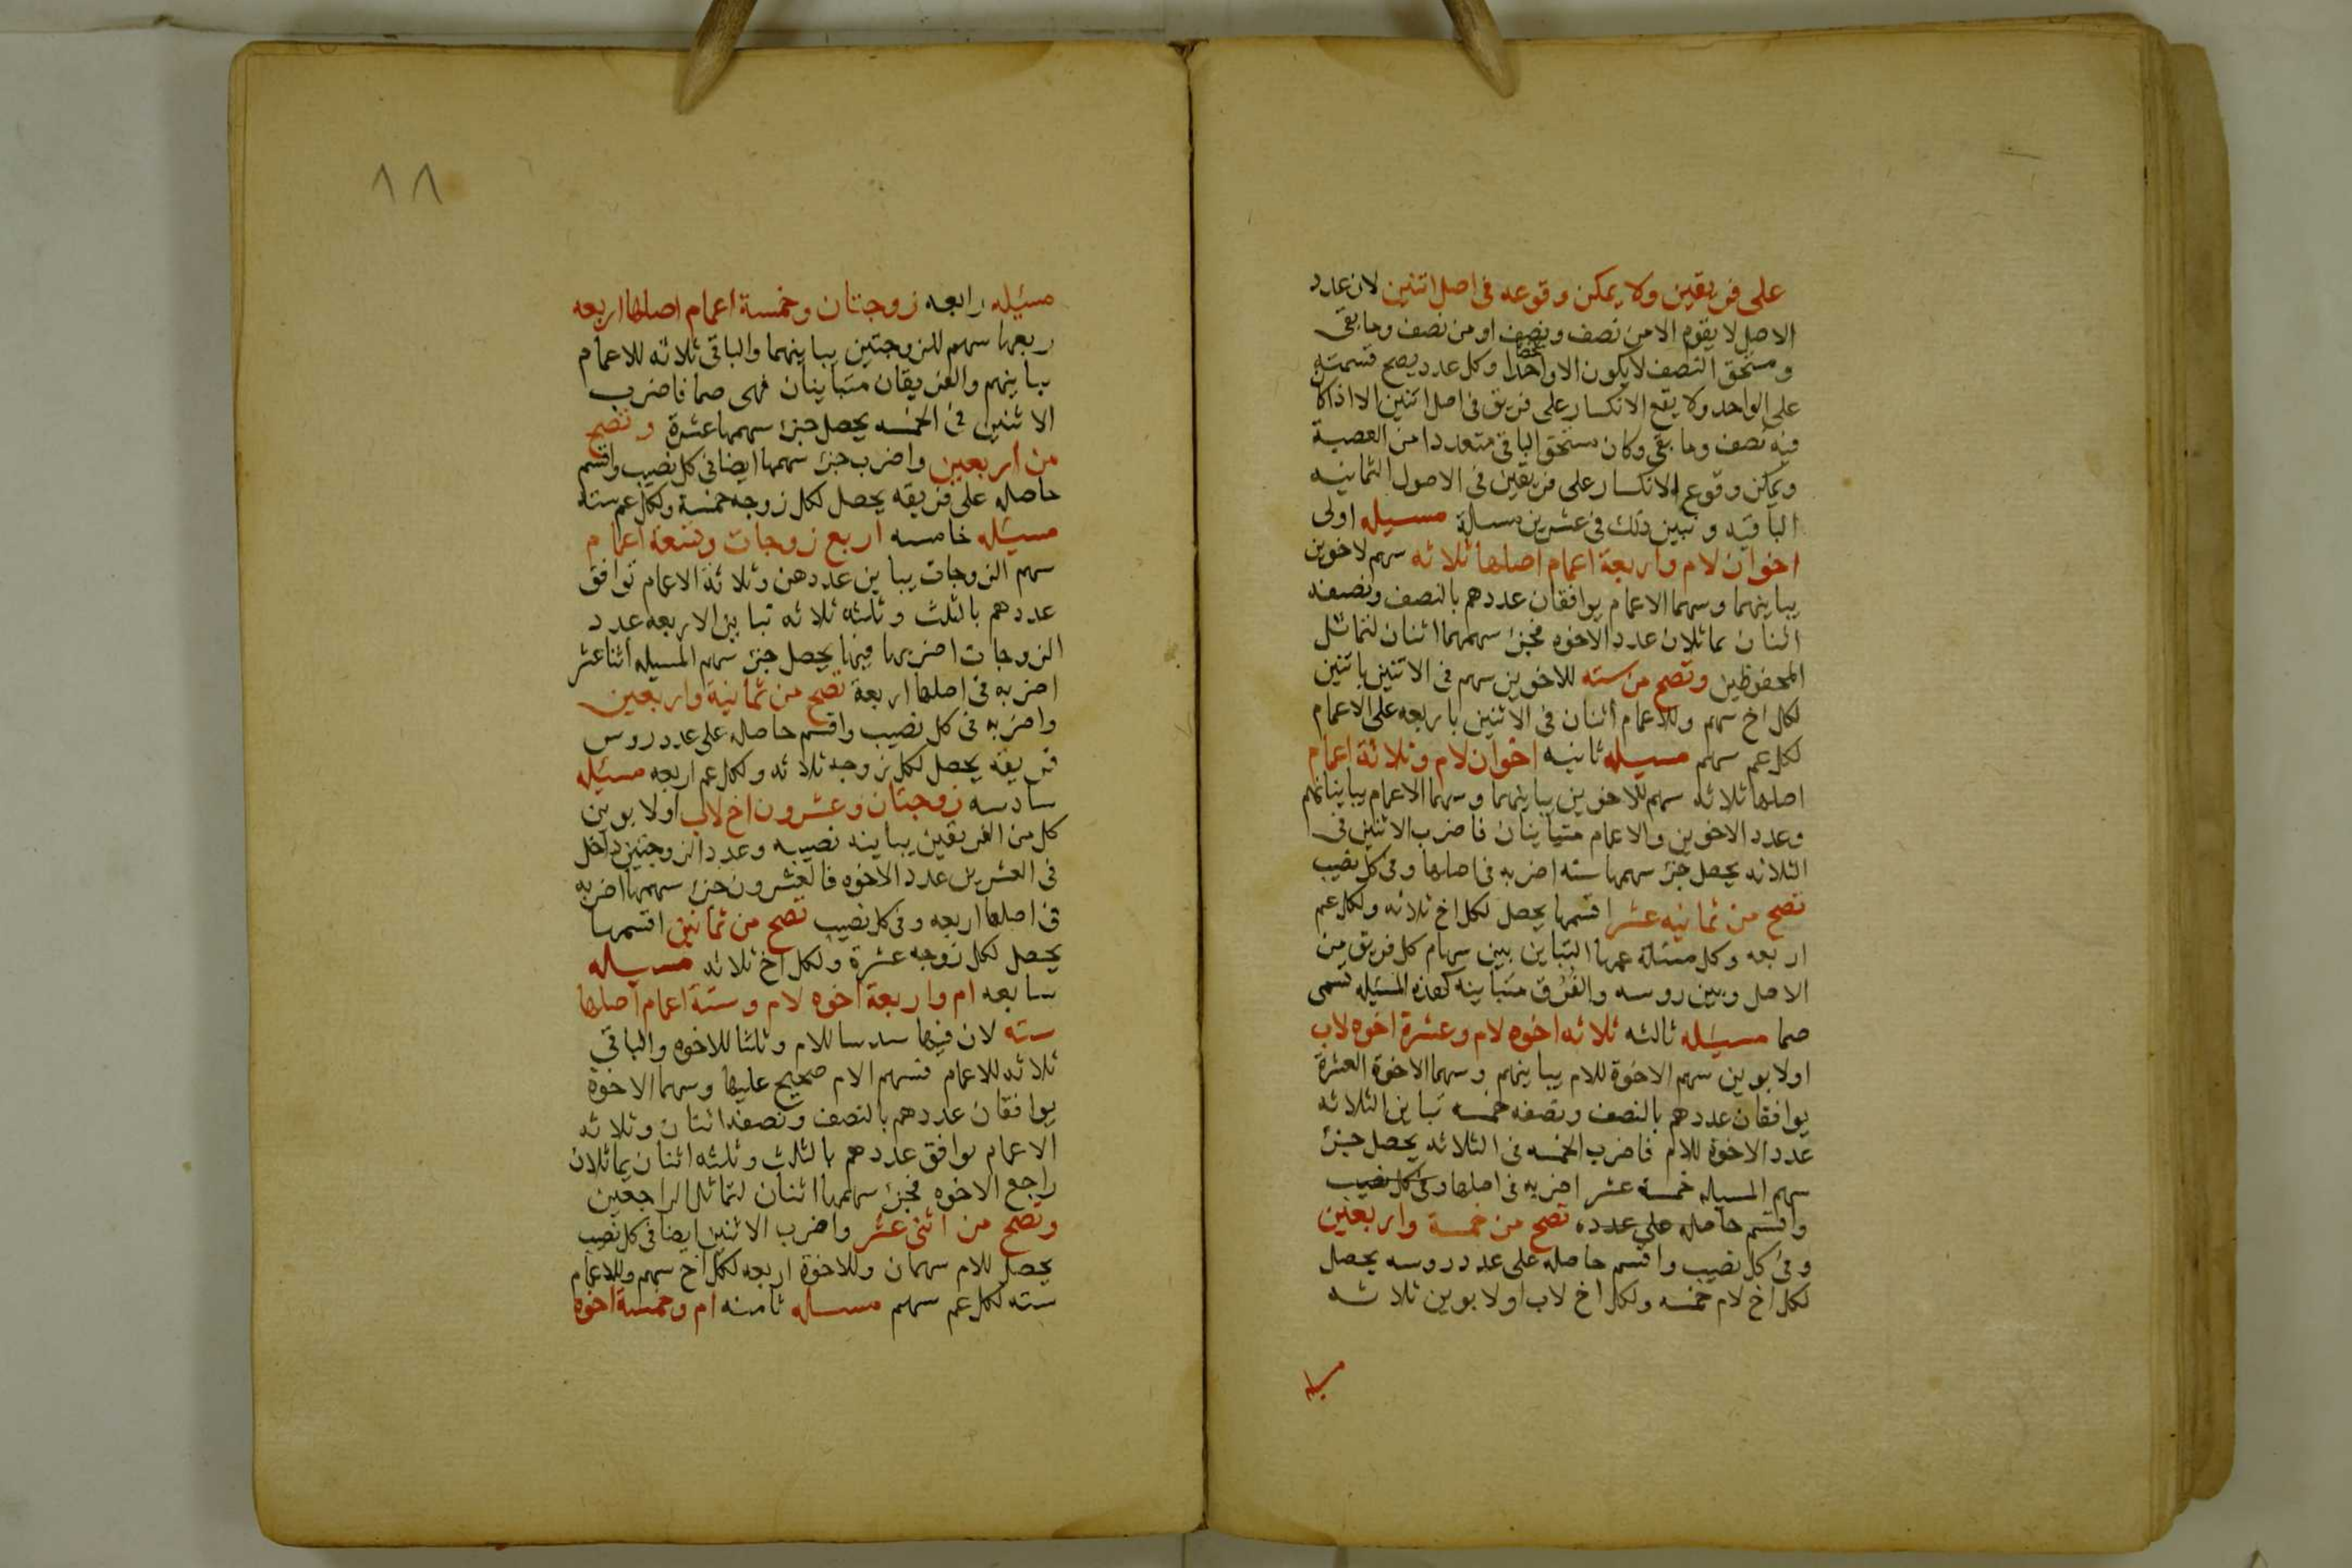 على فريقين ولا يمكن وقوعه في اصل اثنين لان عدد
الاصل لا يقوم الا من نصف ونصف او من نصف وما بقي
ومستحق النصف لا يكون الا واحدا وكل عدد يصح قسمته
على الواحد ولا يقع الانكسار على فريق في اصل اثنين الا اذا كا
فيه نصف وما بقي وكان مستحق الباقي متعددا من العصبة
ويمكن وقوع الانكسار على فريقين في الاصول الثمانيه
الباقيه ونبين ذلك في عشرين مسالة مسيله اولى
اخوان لام واربعة اعمام اصلها ثلاثه سهم لاخوين
يباينهما وسهما الاعمام يوافقان عددهم بالنصف ونصفه
اثنان يماثلان عدد الاخوه فجزء سهمهما اثنان لتماثل
المحفوظين وتصح من سته للاخوين سهم في الاثنين باثنين
لكل اخ سهم وللاعمام اثنان في الاثنين باربعه على الاعمام
لكل عم سهم مسيله ثانيه اخوان لام وثلاثة اعمام
اصلها ثلاثه سهم للاخوين يباينهما وسهما الاعمام يباينانهم
وعدد الاخوين والاعمام متباينان فاضرب الاثنين في
الثلاثه يحصل جزء سهمها سته اضربه في اصلها وفي كل نصيب
تصح من ثمانيه عشر اقسمها يحصل لكل اخ ثلاثه ولكل عم
اربعه وكل مسئلة عمها التباين بين سهام كل فريق من
الاصل وبين روسه والفرق متباينه كهذه المسئيله تسمى
صما مسيئله ثالثه ثلاثه اخوه لام وعشرة اخوه لاب
اولابوين سهم الاخوة للام يباينهم وسهما الاخوة العشرة
يوافقان عددهم بالنصف ونصفه خمسه تباين الثلاثه
عدد الاخوة للام فاضرب الخمسه في الثلاثه يحصل جزء
سهم المسيله خمسة عشر اضربه في اصلها وفي كل نصيب
واقسم حاصله على عدده تصح من خمسة واربعين
وفي كل نصيب واقسم حاصله على عدد روسه يحصل
لكل اخ لام خمسه ولكل اخ لاب اولابوين ثلاثه
مسيله
١٨
مسئيله رابعه زوجتان وخمسة اعمام اصلها اربعه
ربعها سهم للزوجتين يباينهما والباقي ثلاثه للاعمام
يباينهم والفريقان متباينان فهي صما فاضرب
الاثنين في الخمسه يحصل جزء سهمها عشرة وتصح
من اربعين واضرب جزء سهمها ايضا في كل نصيب واقسم
حاصله على فريقه يحصل لكل زوجه خمسة ولكل عم سته
مسيئله خامسه اربع زوجات وتسعة اعمام
سهم الزوجات يباين عددهن وثلاثة الاعمام توافق
عددهم بالثلث وثلثه ثلاثه تباين الاربعه عدد
الزوجات اضربها فيها يحصل جزء سهم المسيله اثناعشر
اضربه في اصلها اربعة تصح من ثمانية واربعين
واضربه في كل نصيب واقسم حاصله على عدد روس
فريقه يحصل لكل زوجه ثلاثه ولكل عم اربعه مسئيله
سادسه زوجتان وعشرون اخ لاب اولابوين
كل من الفريقين يباينه نصيبه وعدد الزوجتين داخل
في العشرين عدد الاخوه فالعشرون جزء سهمها اضربه
في اصلها اربعه وفي كل نصيب تصح من ثمانين اقسمها
يحصل لكل زوجه عشرة ولكل اخ ثلاثه مسيله
سابعه ام واربعة اخوه لام وستة اعمام اصلها
سته لان فيها سدسا للام وثلثا للاخوه والباقي
ثلاثه للاعمام فسهم الام صحيح عليها وسهما الاخوة
يوافقان عددهم بالنصف ونصفه اثنان وثلاثه
الاعمام توافق عددهم بالثلث وثلثه اثنان يماثلان
راجع الاخوه فجزء سهمها اثنان لتماثل الراجعين
وتصح من اثنى عشر واضرب الاثنين ايضا في كل نصيب
يحصل للام سهمان وللاخوة اربعه لكل اخ سهم وللاعمام
سته لكل عم سهم مسيله ثامنه ام وخمسة اخوه